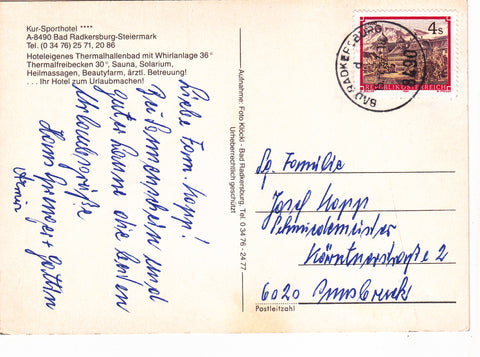 Kur-Sporthotel ****
A-8490 Bad Radkersburg-Steiermark
Tel. (0 34 76) 25 71, 20 86
Hoteleigenes Thermalhallenbad mit Whirlanlage 36°
Thermalfreibecken 30°, Sauna, Solarium,
Heilmassagen, Beautyfarm, ärztl. Betreuung!
... Ihr Hotel zum Urlaubmachen!
Liebe Fam. Kopp!
Bei Sonnenschein und
guter Laune die besten
Urlaubsgrüße
Hans Springer + Gattin
Armin
Aufnahme: Foto Klöckl - Bad Radkersburg, Tel. 0 34 76 - 24 77
Urheberrechtlich geschützt
4 S
REPUBLIK ÖSTERREICH
BAD RADKERSBURG
Fam. Familie
Josef Kopp
Schmiedemeister
Körntnerstraße 2
6020 Innsbruck
Postleitzahl